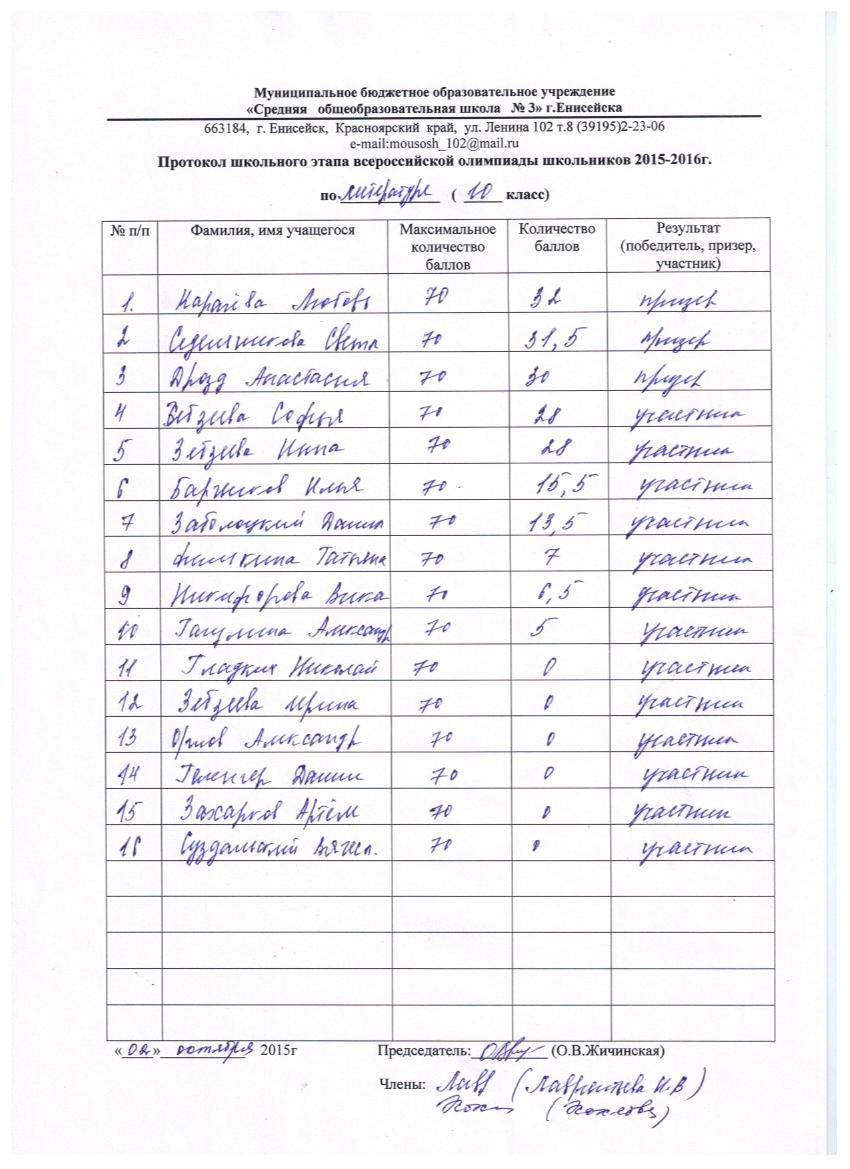 Муниципальное бюджетное образовательное учреждение
«Средняя общеобразовательная школа № 3» г.Енисейска
663184, г. Енисейск, Красноярский край, ул. Ленина 102 т.8 (39195)2-23-06
e-mail:mousosh_102@mail.ru
Протокол школьного этапа всероссийской олимпиады школьников 2015-2016г.
по литературе ( 10 класс)
№ п/п Фамилия, имя учащегося Максимальное количество баллов Количество баллов Результат (победитель, призер, участник)
1. Карачёва Любовь 70 32 призер
2 Седельникова Светл 70 31,5 призер
3 Дрозд Анастасия 70 30 призер
4 Зебзеева Софья 70 28 участник
5 Зебзеева Нина 70 28 участник
6 Баржиков Илья 70 15,5 участник
7 Заболоцкий Данил 70 13,5 участник
8 Татьяна 70 7 участник
9 Никифорова Вика 70 6,5 участник
10 Гагулина Александр 70 5 участник
11 Гладких Николай 70 0 участник
12 Зебзеева Ирина 70 0 участник
13 Орлов Александр 70 0 участник
14 Данил 70 0 участник
15 Захарков Артём 70 0 участник
16 Суздальский Вячесл. 70 0 участник
«02» октября 2015г Председатель: (О.В.Жичинская)
Члены: Лавр (Лаврентьева Н.В)